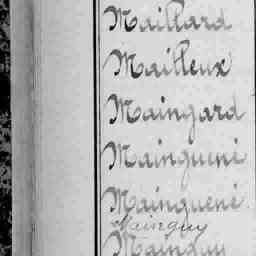 Maillard
Mailleux
Maingard
Mainguené
Mainguené
Mainguy
Mainguy